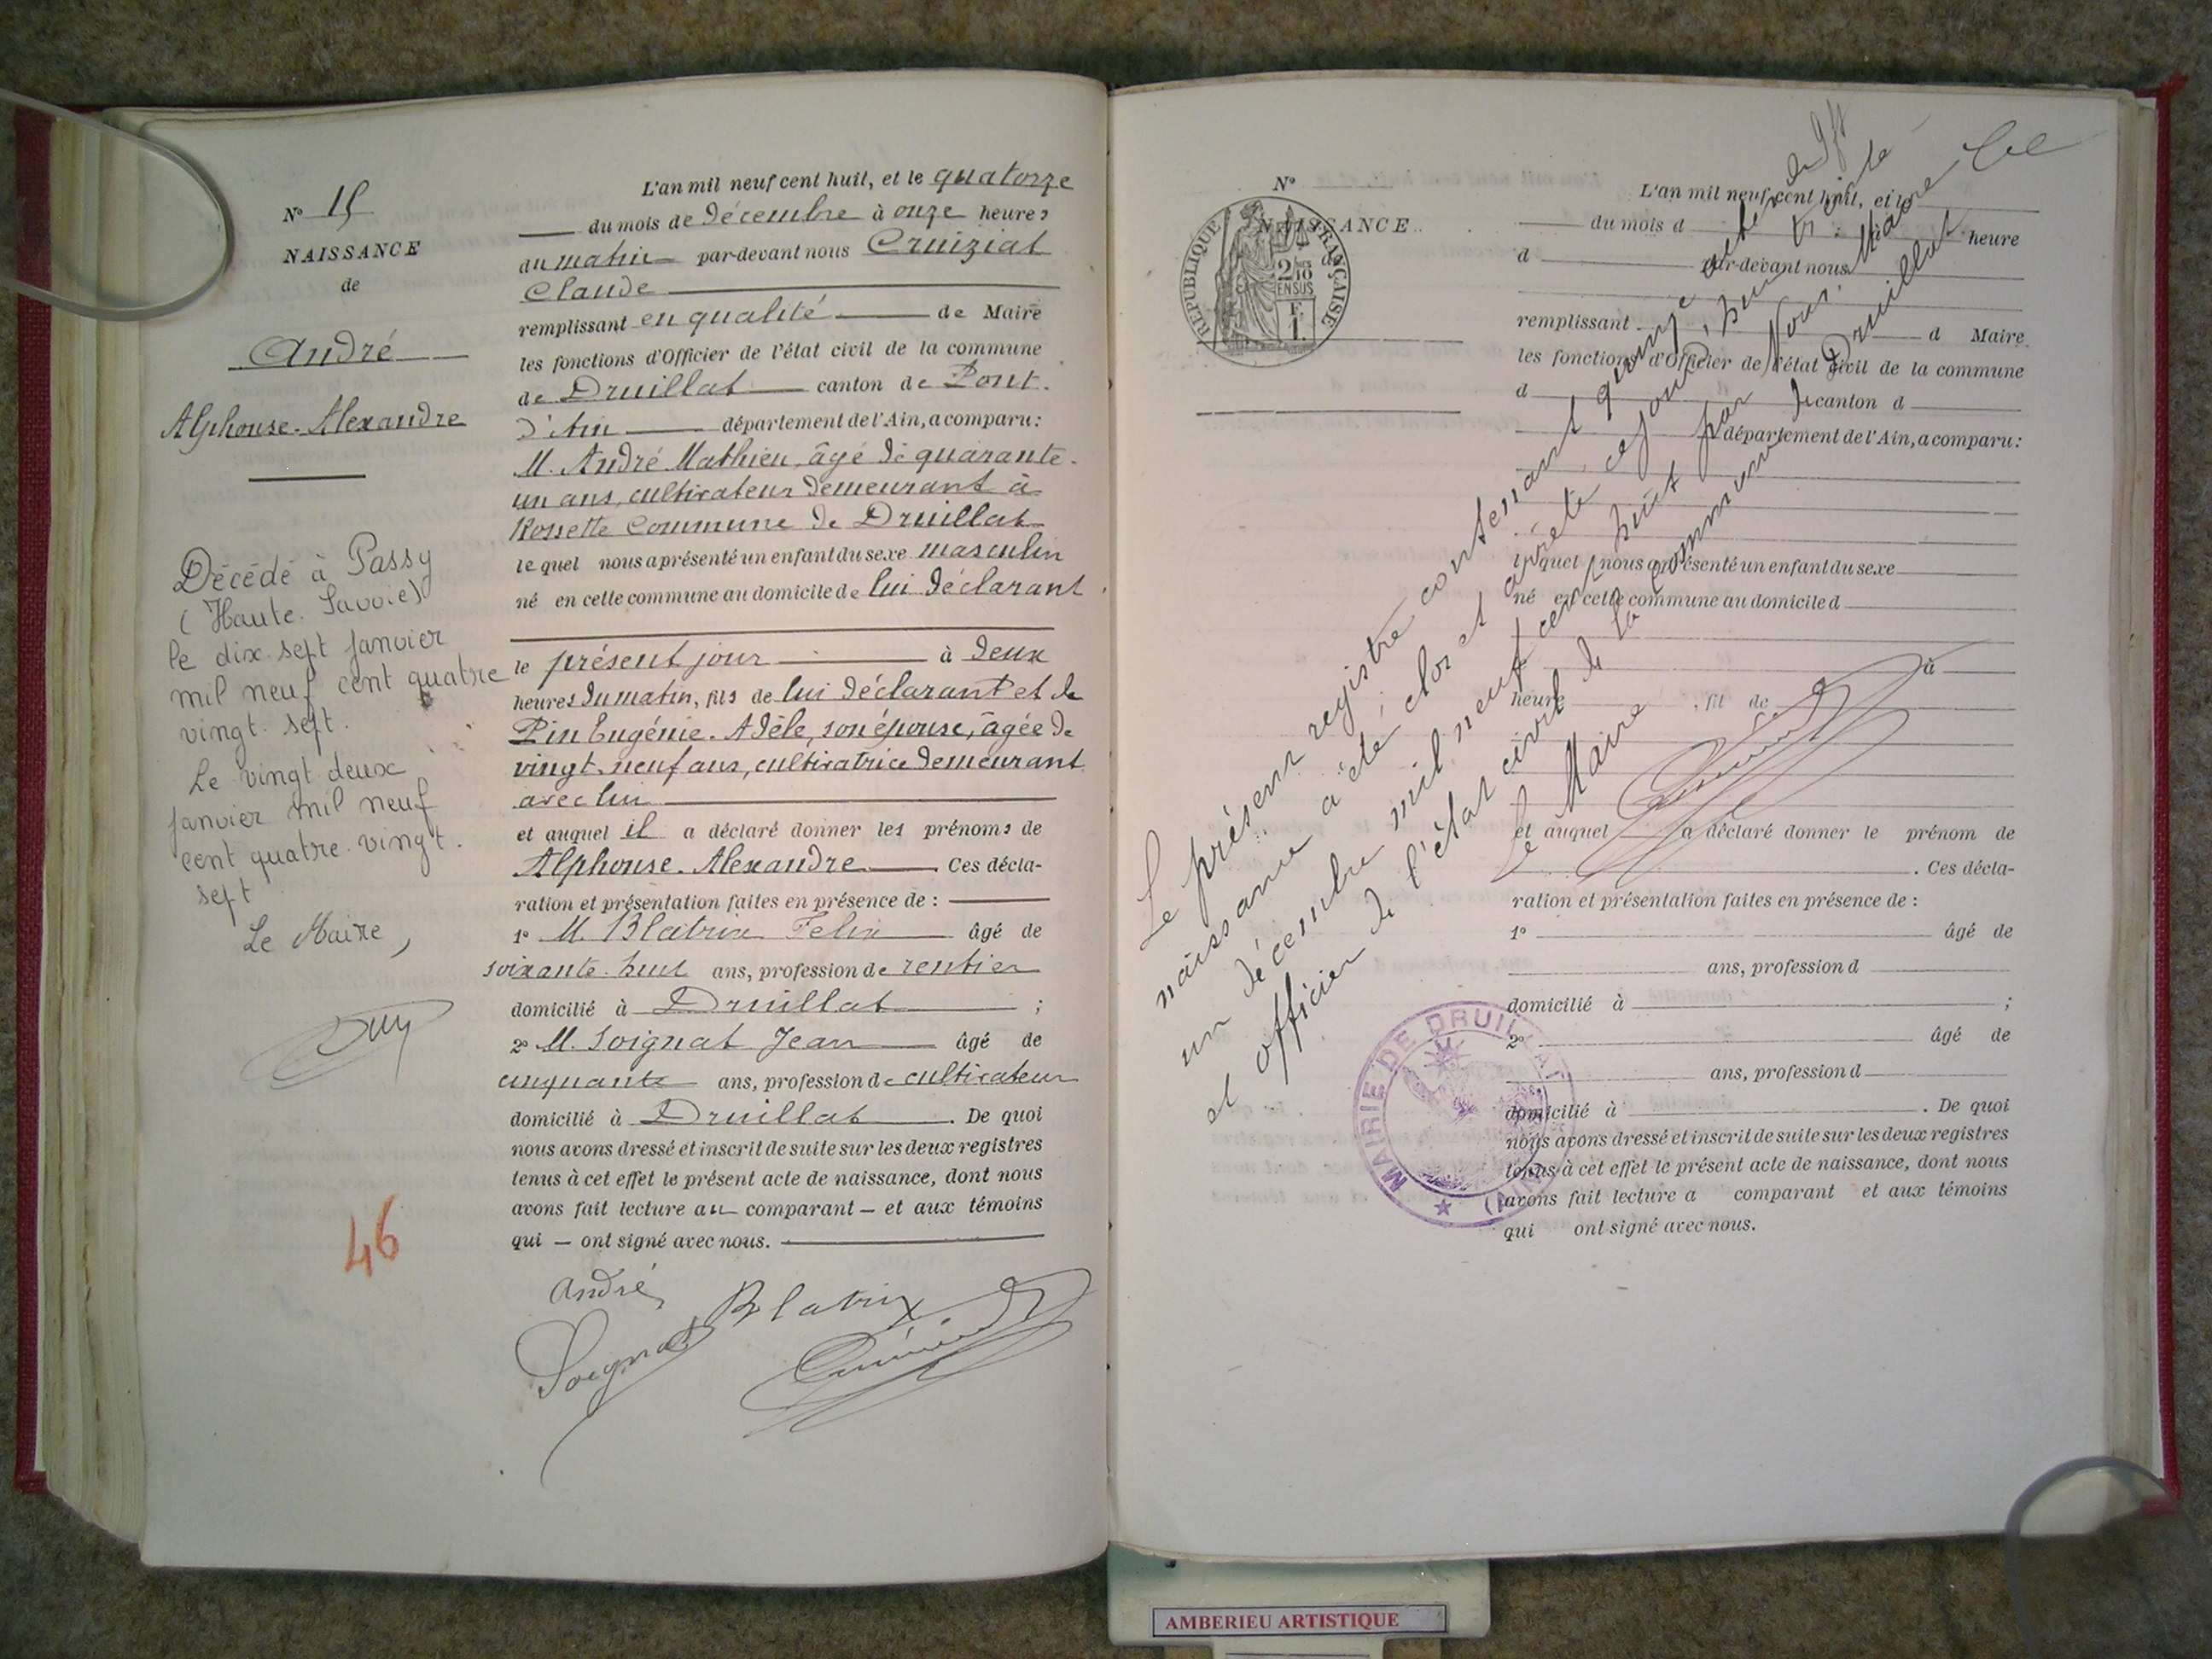 Nº 15
NAISSANCE
de
André
Alphonse-Alexandre
Décédé à Passy
(Haute-Savoie)
le dix-sept janvier
mil neuf cent quatre
vingt-sept.
Le vingt deux
janvier mil neuf
cent quatre-vingt-
sept
Le Maire,
46
L'an mil neuf cent huit, et le quatorze
du mois de décembre à onze heures
du matin par-devant nous Cruiziat
Claude
remplissant en qualité de Maire
les fonctions d'Officier de l'état civil de la commune
de Druillat canton de Pont-
d'Ain département de l'Ain, a comparu:
M. André Mathieu, âgé de quarante-
un ans, cultivateur demeurant à
Rossette Commune de Druillat
lequel nous a présenté un enfant du sexe masculin
né en cette commune au domicile de lui déclarant
le présent jour à deux
heures du matin, fils de lui déclarant et de
Pin Eugénie-Adèle, son épouse, âgée de
vingt-neuf ans, cultivatrice demeurant
avec lui
et auquel il a déclaré donner les prénoms de
Alphonse-Alexandre. Ces décla-
ration et présentation faites en présence de :
1º M. Blatrix Felix âgé de
soixante-huit ans, profession de rentier
domicilié à Druillat ;
2º M. Soignat Jean âgé de
cinquante ans, profession de cultivateur
domicilié à Druillat. De quoi
nous avons dressé et inscrit de suite sur les deux registres
tenus à cet effet le présent acte de naissance, dont nous
avons fait lecture au comparant — et aux témoins
qui — ont signé avec nous.
André Blatrix
Soignat
Nº
NAISSANCE
RÉPUBLIQUE FRANÇAISE
2/10 EN SUS
L'an mil neuf cent huit, et le
du mois d heure
d par-devant nous
remplissant d Maire
les fonctions d'Officier de l'état civil de la commune
d canton d
département de l'Ain, a comparu:
lquel nous a présenté un enfant du sexe
né en cette commune au domicile d
le à
heure , fil de
et auquel a déclaré donner le prénom de
. Ces décla-
ration et présentation faites en présence de :
1º âgé de
ans, profession d
domicilié à ;
2º âgé de
ans, profession d
domicilié à . De quoi
nous avons dressé et inscrit de suite sur les deux registres
tenus à cet effet le présent acte de naissance, dont nous
avons fait lecture a comparant et aux témoins
qui ont signé avec nous.
Le présent registre contenant quinze actes de
naissance a été clos et arrêté, ce jourd'hui trente
un décembre mil neuf cent huit par Nous, Maire
et officier de l'état civil de la commune de Druillat
Le Maire
MAIRIE DE DRUILLAT (AIN)
AMBERIEU ARTISTIQUE